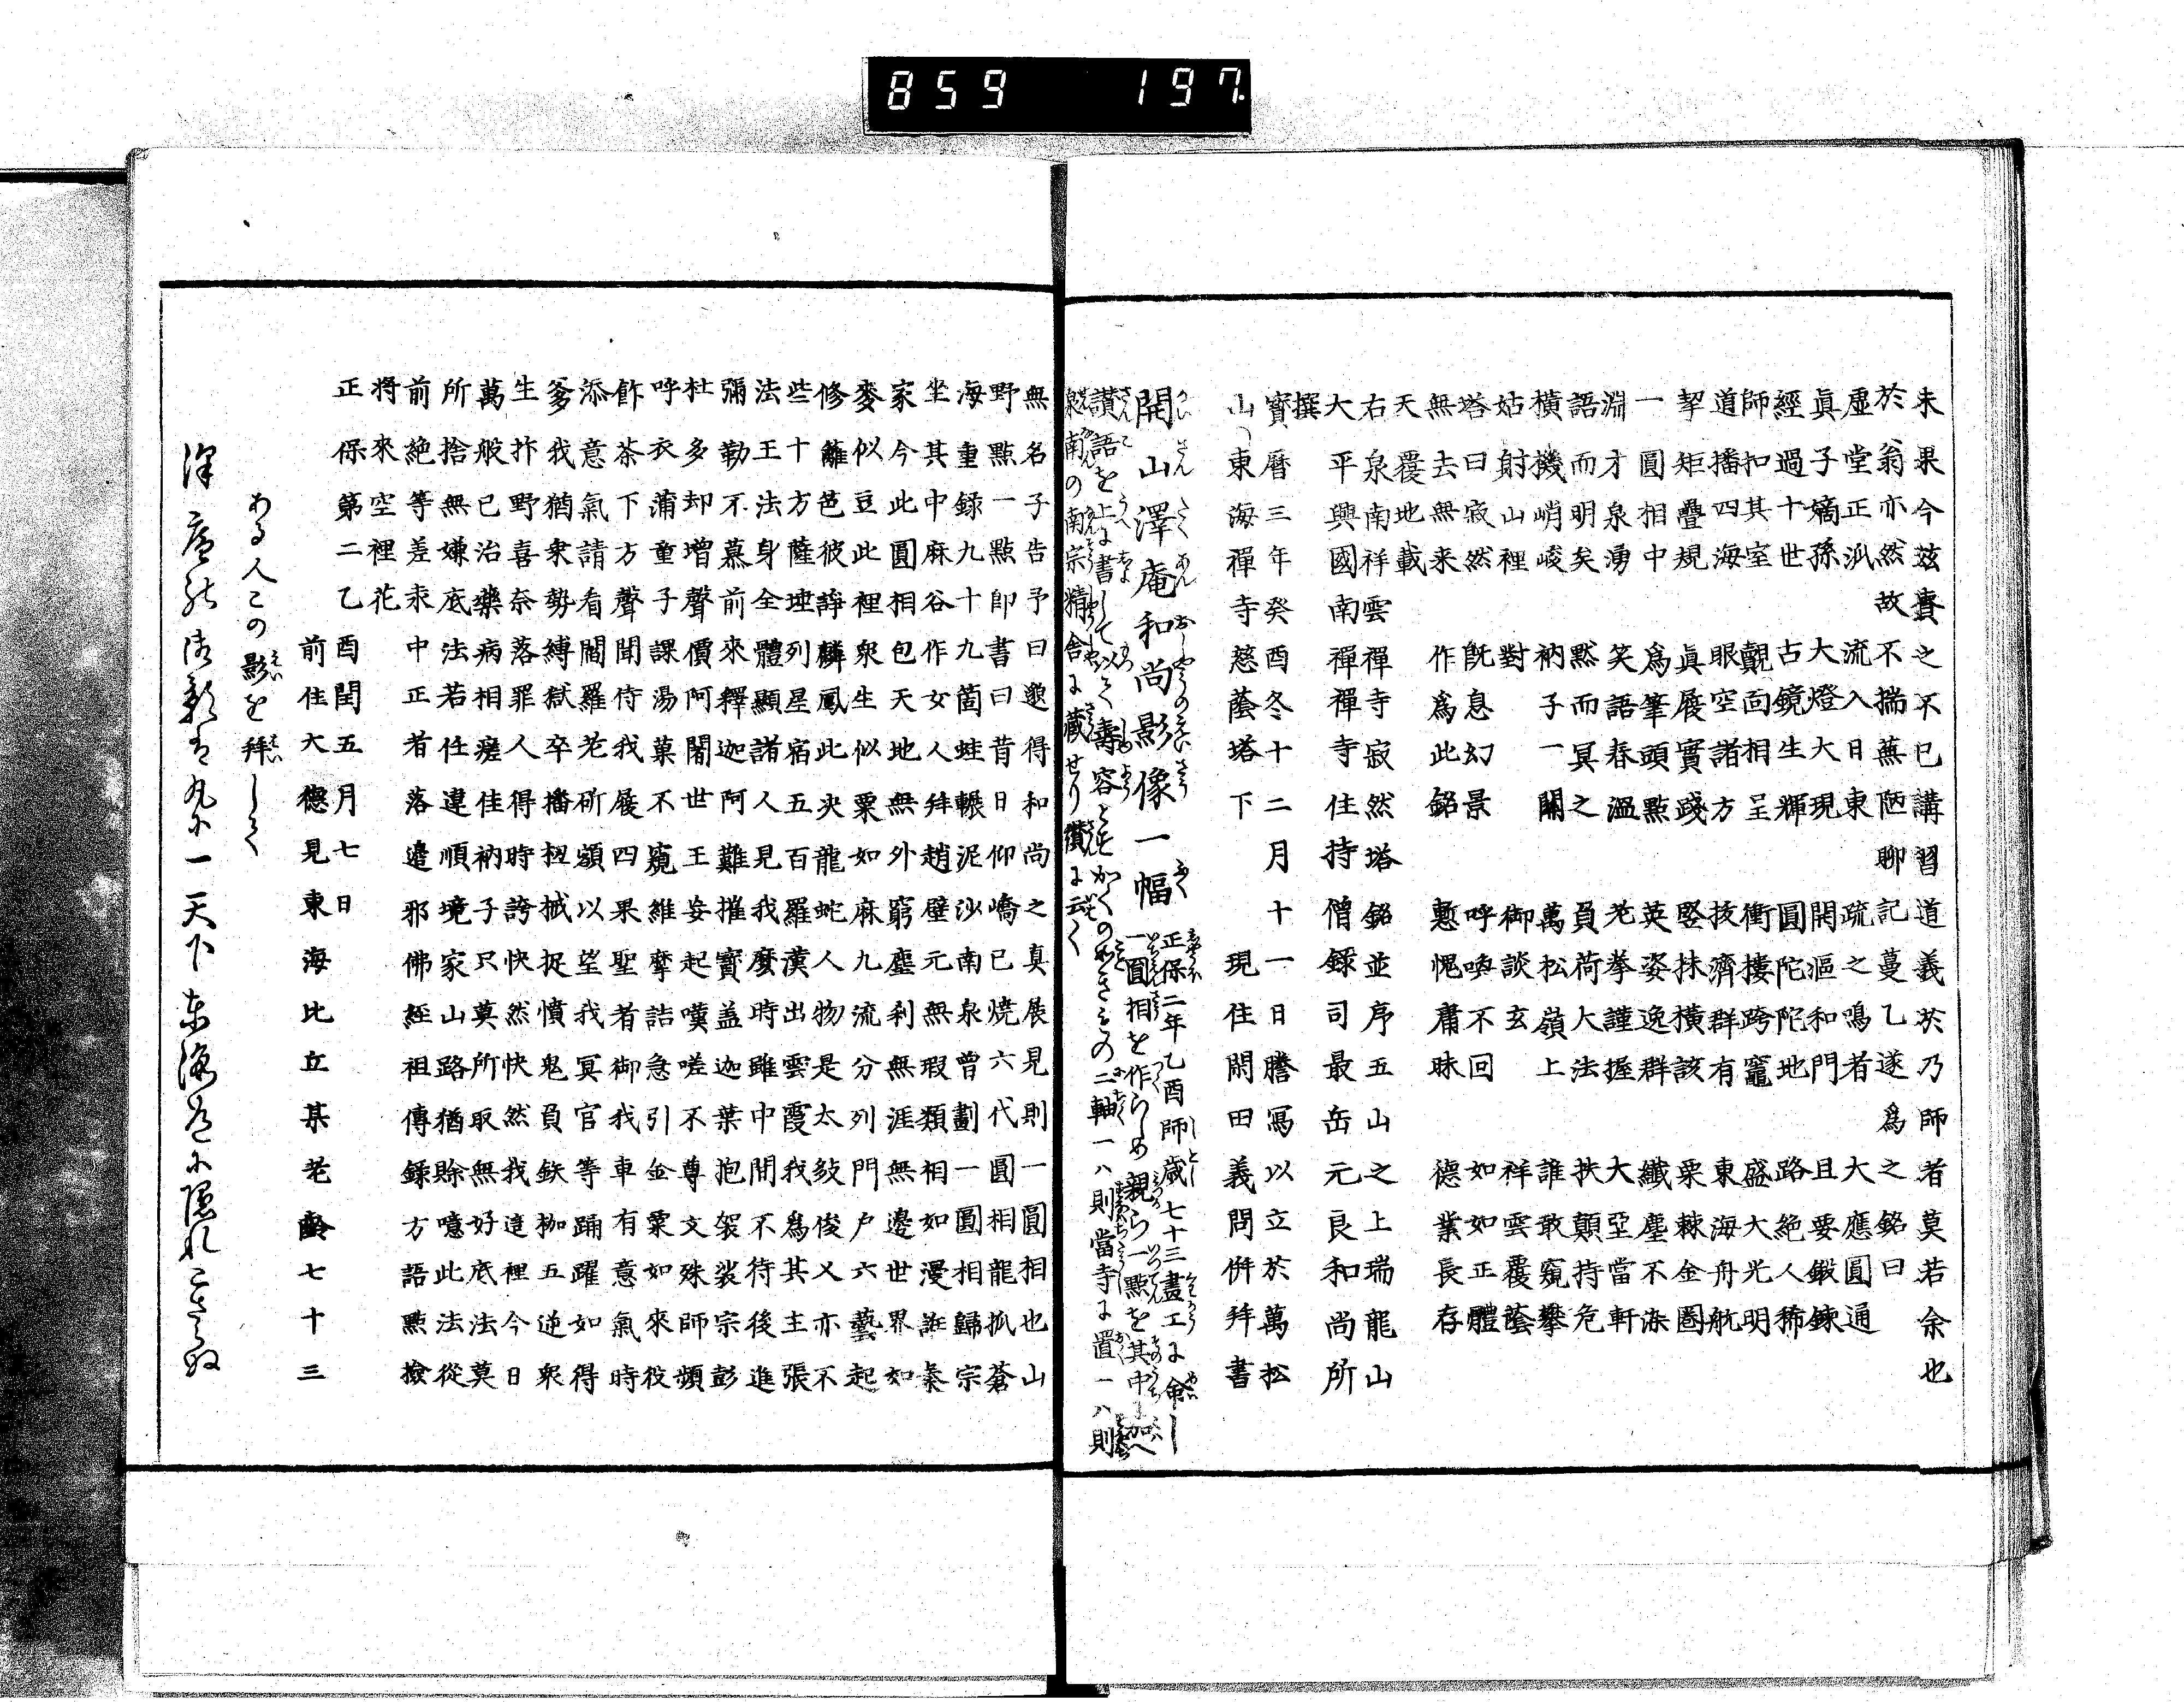 未果今茲賽之不已講習道義於乃師者莫若余也
於翁亦然故不揣蕪陋聊記蔓乙遂爲之銘曰
虛堂正派 流入日東 疏之鳴者 大應圓通
眞子嫡孫 大燈大現 開漚和門 且要鍛鍊
經過十世 古鏡生輝 圓陀陀地 路絶人稀
師扣其室 覿面相呈 衝樓跨竈 盛大光明
道播四海 眼空諸方 抜濟群有 東海舟航
挈矩疊規 眞展實踐 竪抹橫該 栗棘金圈
一圓相中 爲筆頭點 英姿逸群 纖塵不染
淵才泉湧 笑語春溫 老拳謹握 大亞當軒
語而明矣 默而冥之 負荷大法 扶顛持危
橫機峭峻 衲子一關 萬松嶺上 誰敢窺攀
姑射山裡 對御談玄 祥雲覆蔭
塔曰寂然 旣息幻景 呼喚不回 如如正體
無去無来 作爲此銘 慙愧肅昧 德業長存
天覆地載
右泉南祥雲禪寺寂然塔銘並序五山之上瑞龍山
大平興國南禪禪寺住持僧錄司最岳元良和尚所
撰
寶曆三年癸酉冬十二月十一日謄寫以立於萬松
山東海禪寺慈蔭塔下 現住閑田義問併拜書
開山澤庵和尚影像一幅 正保二年乙酉師歳七十三畫工に命し
一圓相を作らしめ親ら一點を其中に加へ
讃語を上に書して以て壽容とすかくのことき之の二軸一ハ則當寺に置一ハ則
泉南の南宗精舍に蔵せり讃に云く
無名子告予曰邈得和尚之真展見則一圓相也山
野點一點卽書曰昔日仰嶠已燒六代圓相龍抓蒼
海重錄九十九箇蛙輾泥沙南泉曾劃一圓相歸宗
坐其中麻谷作女人拜趙璧元無瑕類相如漫誑秦
家今此圓相包天地無外窮塵利無涯無邊世界如
麥似豆此裡衆生似粟如麻九流分列門戶六藝起
修籬芭彼諍麟鳳此夾龍蛇人物是太紋俊乂亦不
些十方薩埵列星宿五百羅漢出雲霞我爲其主張
法王法身全體顯諸人見我麼時雖中間不待後進
彌勒不慕前來釋迦阿難摧寶盖迦葉抱袈裟宗彭
杜多却增聲價阿闍世王妄起嘆嗟不尊文殊師頻
呼衣蒲童子課湯菓不窺維摩詰急引金粟如來役
飵茶下方聲聞侍我展四果聖者御我車有意氣時
添意氣請看閻羅老斫額以望我冥官等踊躍如得
爹我猶衆勢縛獄卒播杻械捉憤鬼負鉄枷五逆衆
生抃野喜奈落罪人得時誇快然快然我這裡今日
萬般已治藥病相瘥佳衲子只莫所取無好底法莫
所捨無嫌底法若任違順境家山路猶賒噫此法從
前絶等差汞中正者落邊邪佛經祖傳錄方語點撿
將來空裡花
正保第二乙酉閏五月七日
前住大德見東海比丘某老齡七十三
ある人この影を拜して